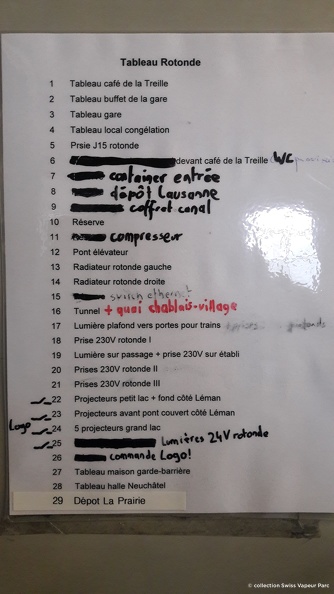 Tableau Rotonde
1 Tableau café de la Treille
2 Tableau buffet de la gare
3 Tableau gare
4 Tableau local congélation
5 Prsie J15 rotonde
6 devant café de la Treille WC
7 container entrée
8 dépôt Lausanne
9 coffret canal
10 Réserve
11 compresseur
12 Pont élévateur
13 Radiateur rotonde gauche
14 Radiateur rotonde droite
15 switch ethernet
16 Tunnel + quai chablais-village
17 Lumière plafond vers portes pour trains
18 Prise 230V rotonde I
19 Lumière sur passage + prise 230V sur établi
20 Prises 230V rotonde II
21 Prises 230V rotonde III
22 Projecteurs petit lac + fond côté Léman
23 Projecteurs avant pont couvert côté Léman
Logo 24 5 projecteurs grand lac
25 Lumières 24V rotonde
26 commande Logo!
27 Tableau maison garde-barrière
28 Tableau halle Neuchâtel
29 Dèpot La Prairie
© collection Swiss Vapeur Parc